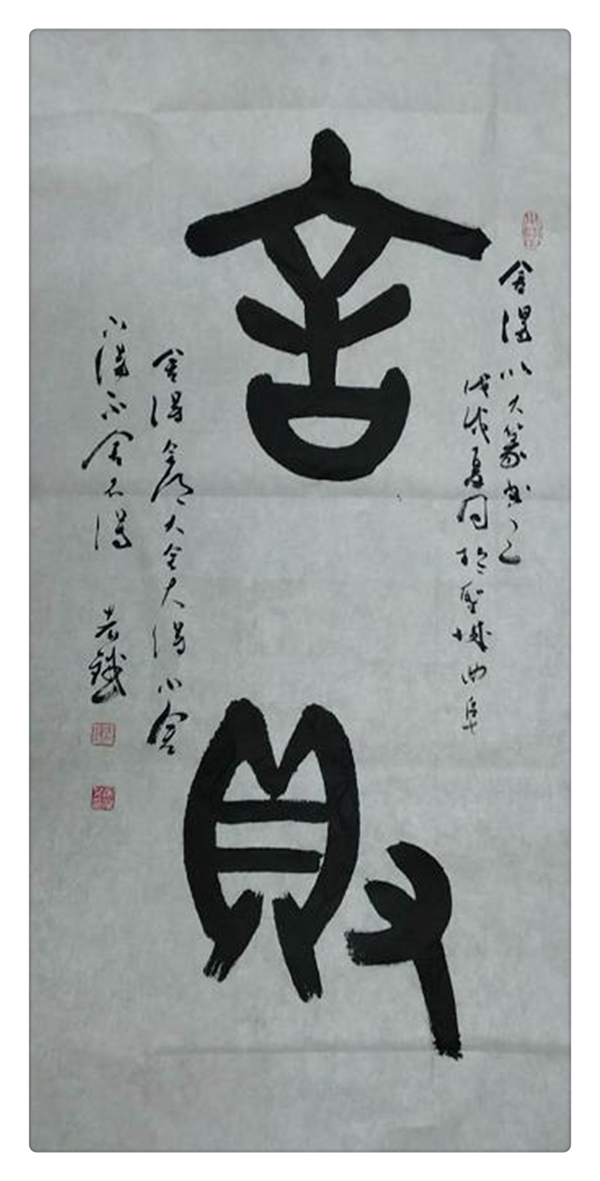 舍得以大篆书之
戊戌夏於聖城曲阜
舍得
舍得舍得大舍大得小舍
小得不舍不得 老鐵